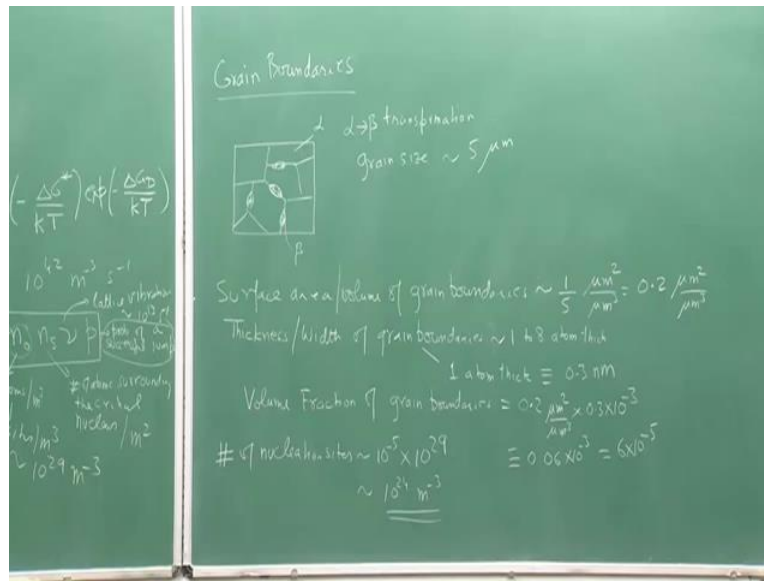 (- ΔG*/kT) exp(- ΔG_D/kT)
10^42 m^-3 s^-1
lattice vibration
~ 10^13
n_s ν p
# of atoms surrounding
the critical
nucleus / m^2
/m^2
/m^3
~ 10^29 m^-3
Grain Boundaries
α
α→β transformation
grain size ~ 5 μm
β
Surface area/volume of grain boundaries ~ 1/5 μm^2/μm^3 = 0.2 μm^2/μm^3
Thickness/Width of grain boundaries ~ 1 to 3 atom thick
1 atom thick ≡ 0.3 nm
Volume Fraction of grain boundaries = 0.2 μm^2/μm^3 × 0.3×10^-3
≡ 0.06×10^-3 = 6×10^-5
# of nucleation sites ~ 10^-5 × 10^29
~ 10^24 m^-3